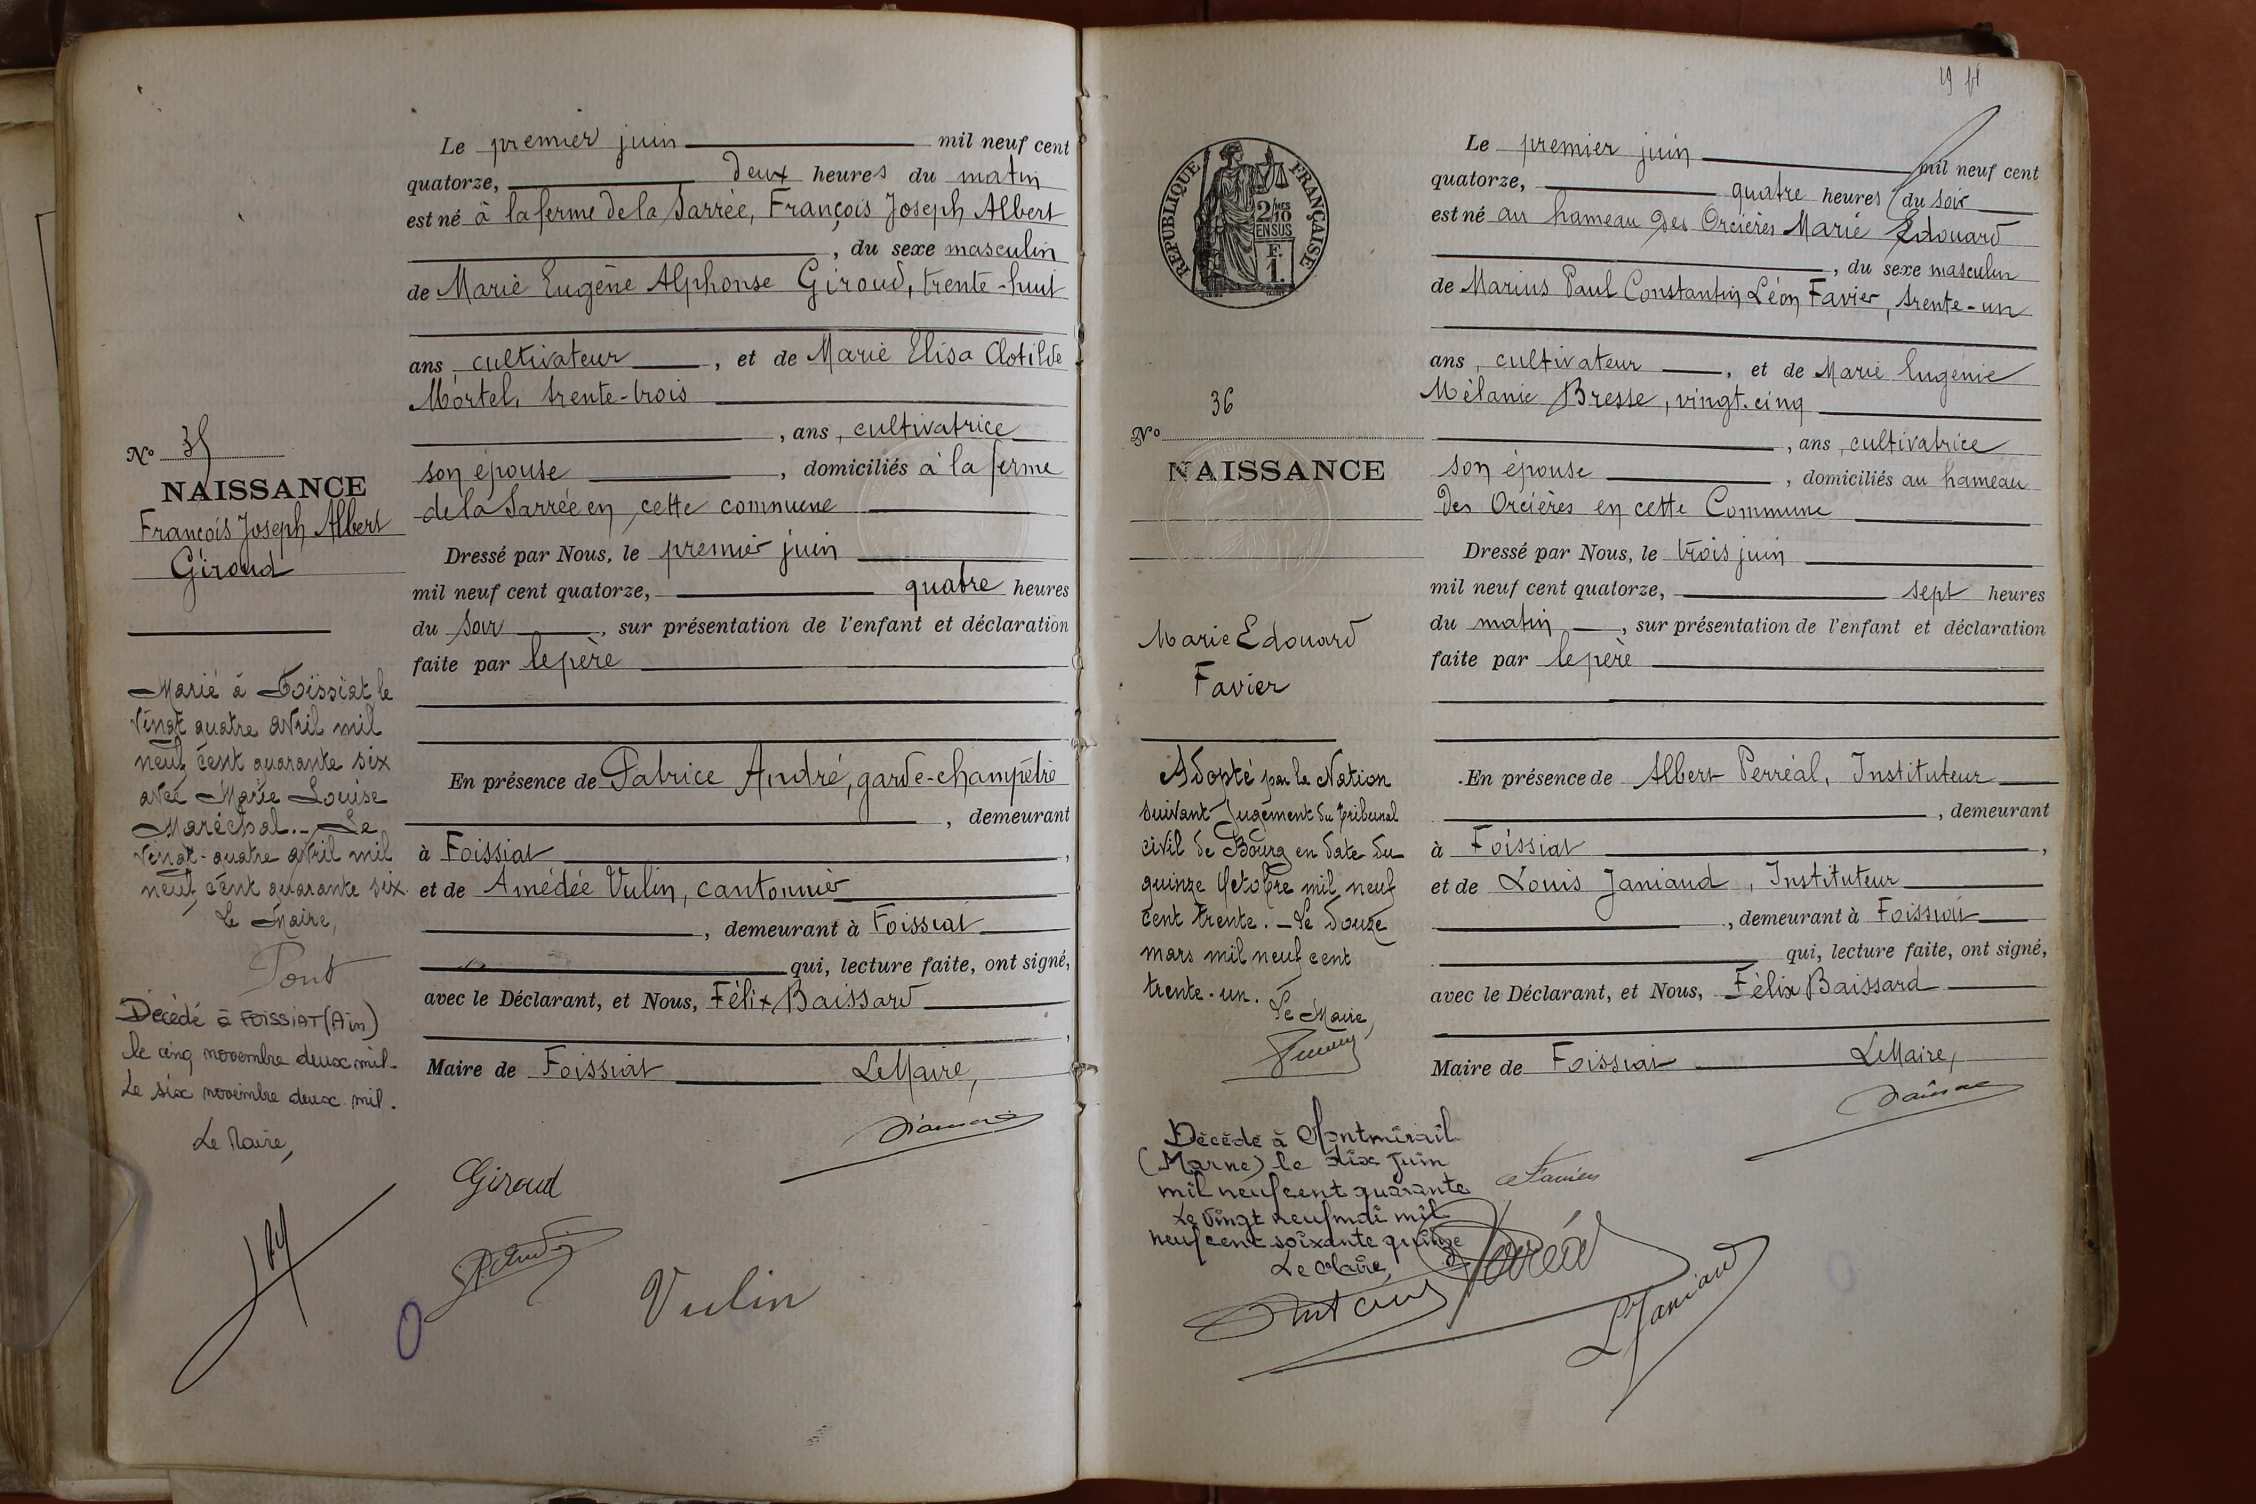 Le premier juin mil neuf cent
quatorze, deux heures du matin
est né à la ferme de la Sarrée, François Joseph Albert
, du sexe masculin
de Marie Eugène Alphonse Giroud, trente-huit
ans, cultivateur, et de Marie Elisa Clotilde
Mortel, trente-trois
, ans, cultivatrice
son épouse, domiciliés à la ferme
de la Sarrée en cette commune
Dressé par Nous, le premier juin
mil neuf cent quatorze, quatre heures
du soir, sur présentation de l'enfant et déclaration
faite par le père
En présence de Patrice André, garde-champêtre
, demeurant
à Foissiat,
et de Amédée Vulin, cantonnier
, demeurant à Foissiat
qui, lecture faite, ont signé,
avec le Déclarant, et Nous, Félix Baissard
,
Maire de Foissiat Le Maire,
Giroud
Vulin
No 35
NAISSANCE
François Joseph Albert
Giroud
Marié à Foissiat le
vingt quatre avril mil
neuf cent quarante six
avec Marie Louise
Maréchal. - Le
vingt-quatre avril mil
neuf cent quarante six.
Le Maire,
Pont
Décédé à FOISSIAT (Ain)
le cinq novembre deux mil.
Le six novembre deux mil.
Le Maire,
RÉPUBLIQUE FRANÇAISE
2/10MES
EN SUS
F.
1.
36
No
NAISSANCE
Marie Edouard
Favier
Adopté par la Nation
suivant Jugement du Tribunal
civil de Bourg en date du
quinze Octobre mil neuf
cent trente. - Le douze
mars mil neuf cent
trente-un.
Le Maire,
Décédé à Montmirail
(Marne) le dix juin
mil neuf cent quarante
Le vingt neuf mai mil
neuf cent soixante quinze
Le Maire,
Le premier juin mil neuf cent
quatorze, quatre heures du soir
est né au hameau des Orcières Marie Edouard
, du sexe masculin
de Marius Paul Constantin Léon Favier, trente-un
ans, cultivateur, et de Marie Eugénie
Mélanie Bresse, vingt-cinq
, ans, cultivatrice
son épouse, domiciliés au hameau
des Orcières en cette Commune
Dressé par Nous, le trois juin
mil neuf cent quatorze, sept heures
du matin, sur présentation de l'enfant et déclaration
faite par le père
En présence de Albert Perréal, Instituteur
, demeurant
à Foissiat,
et de Louis Janiaud, Instituteur
, demeurant à Foissiat
qui, lecture faite, ont signé,
avec le Déclarant, et Nous, Félix Baissard
Maire de Foissiat Le Maire,
Favier
Perréal
L Janiaud